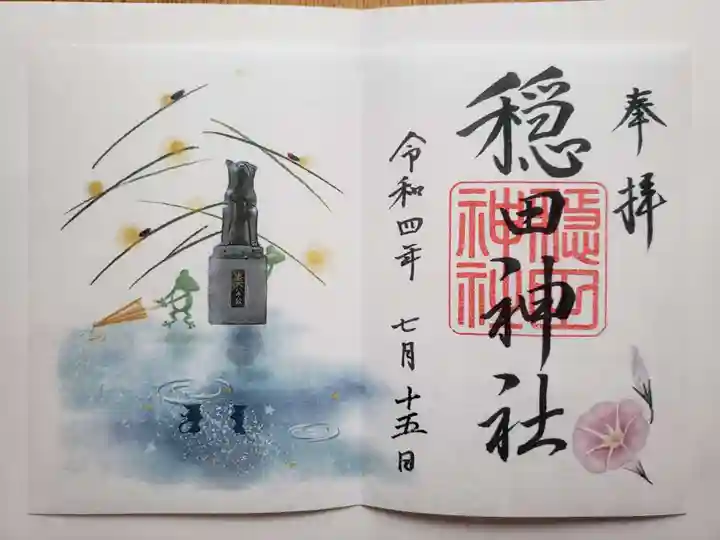 奉拝
穏田神社
穏田神社
令和四年 七月十五日